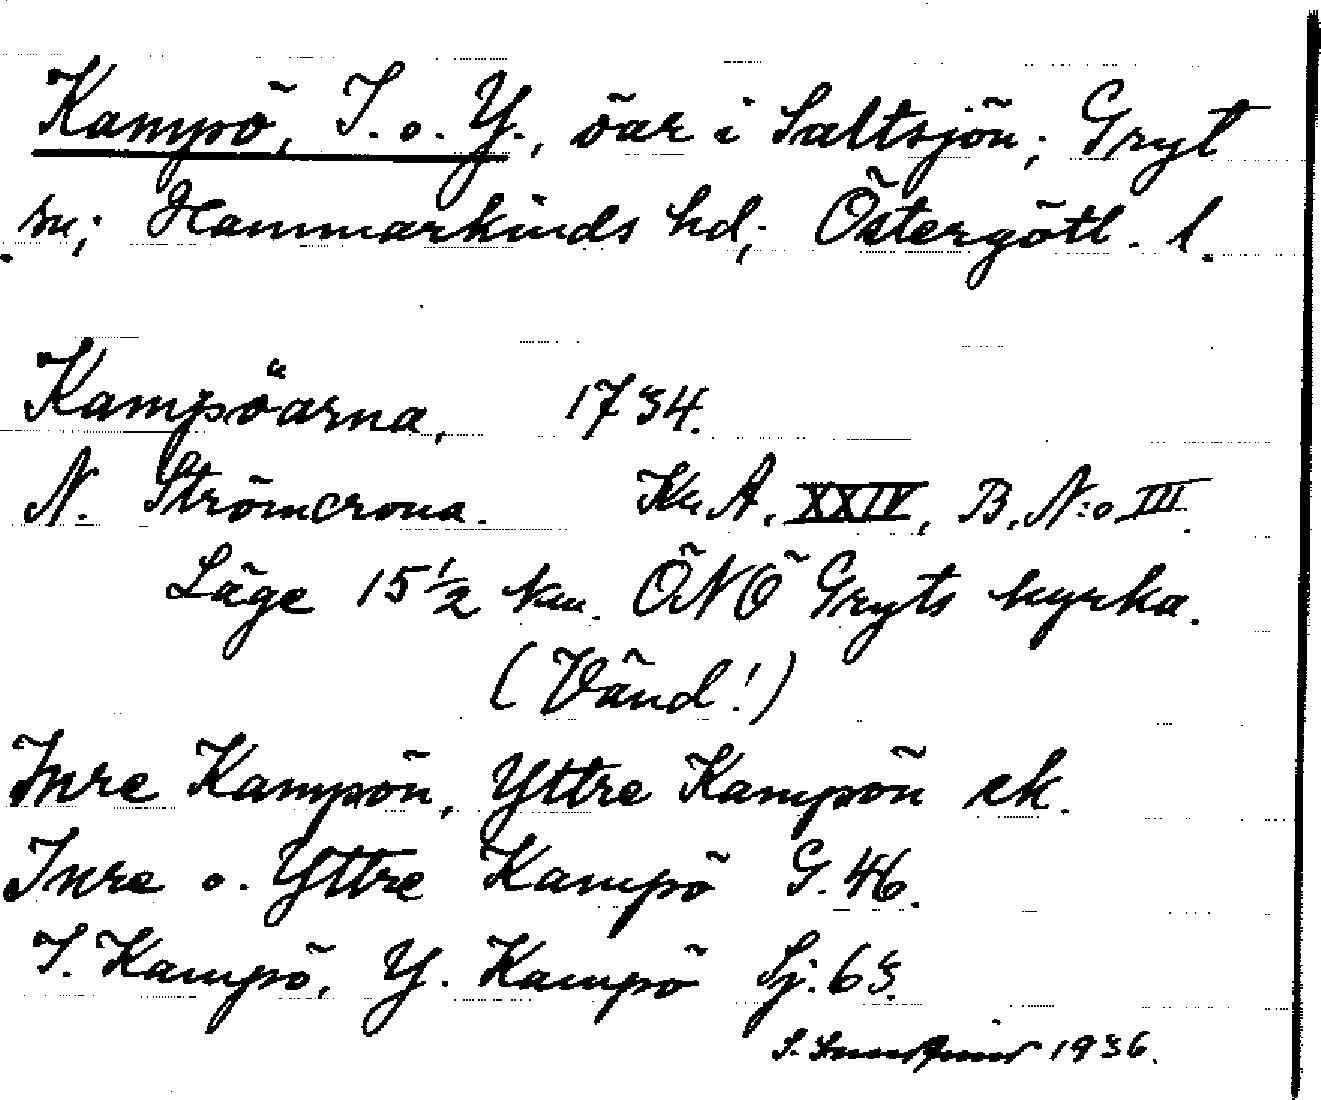 Kampö, I. o. Y., öar i Saltsjön; Gryt
sn; Hammarkinds hd; Östergötl. l.
Kampöarna, 1734.
N. Strömcrona. Kr. A. XXIV, B. N:o III.
Läge 15 1/2 km. ÖNÖ Gryts kyrka.
(Vänd!)
Inre Kampön, Yttre Kampön ek.
Inre o. Yttre Kampö G. 46.
I. Kampö, Y. Kampö Sj. 63.
S. 1936.